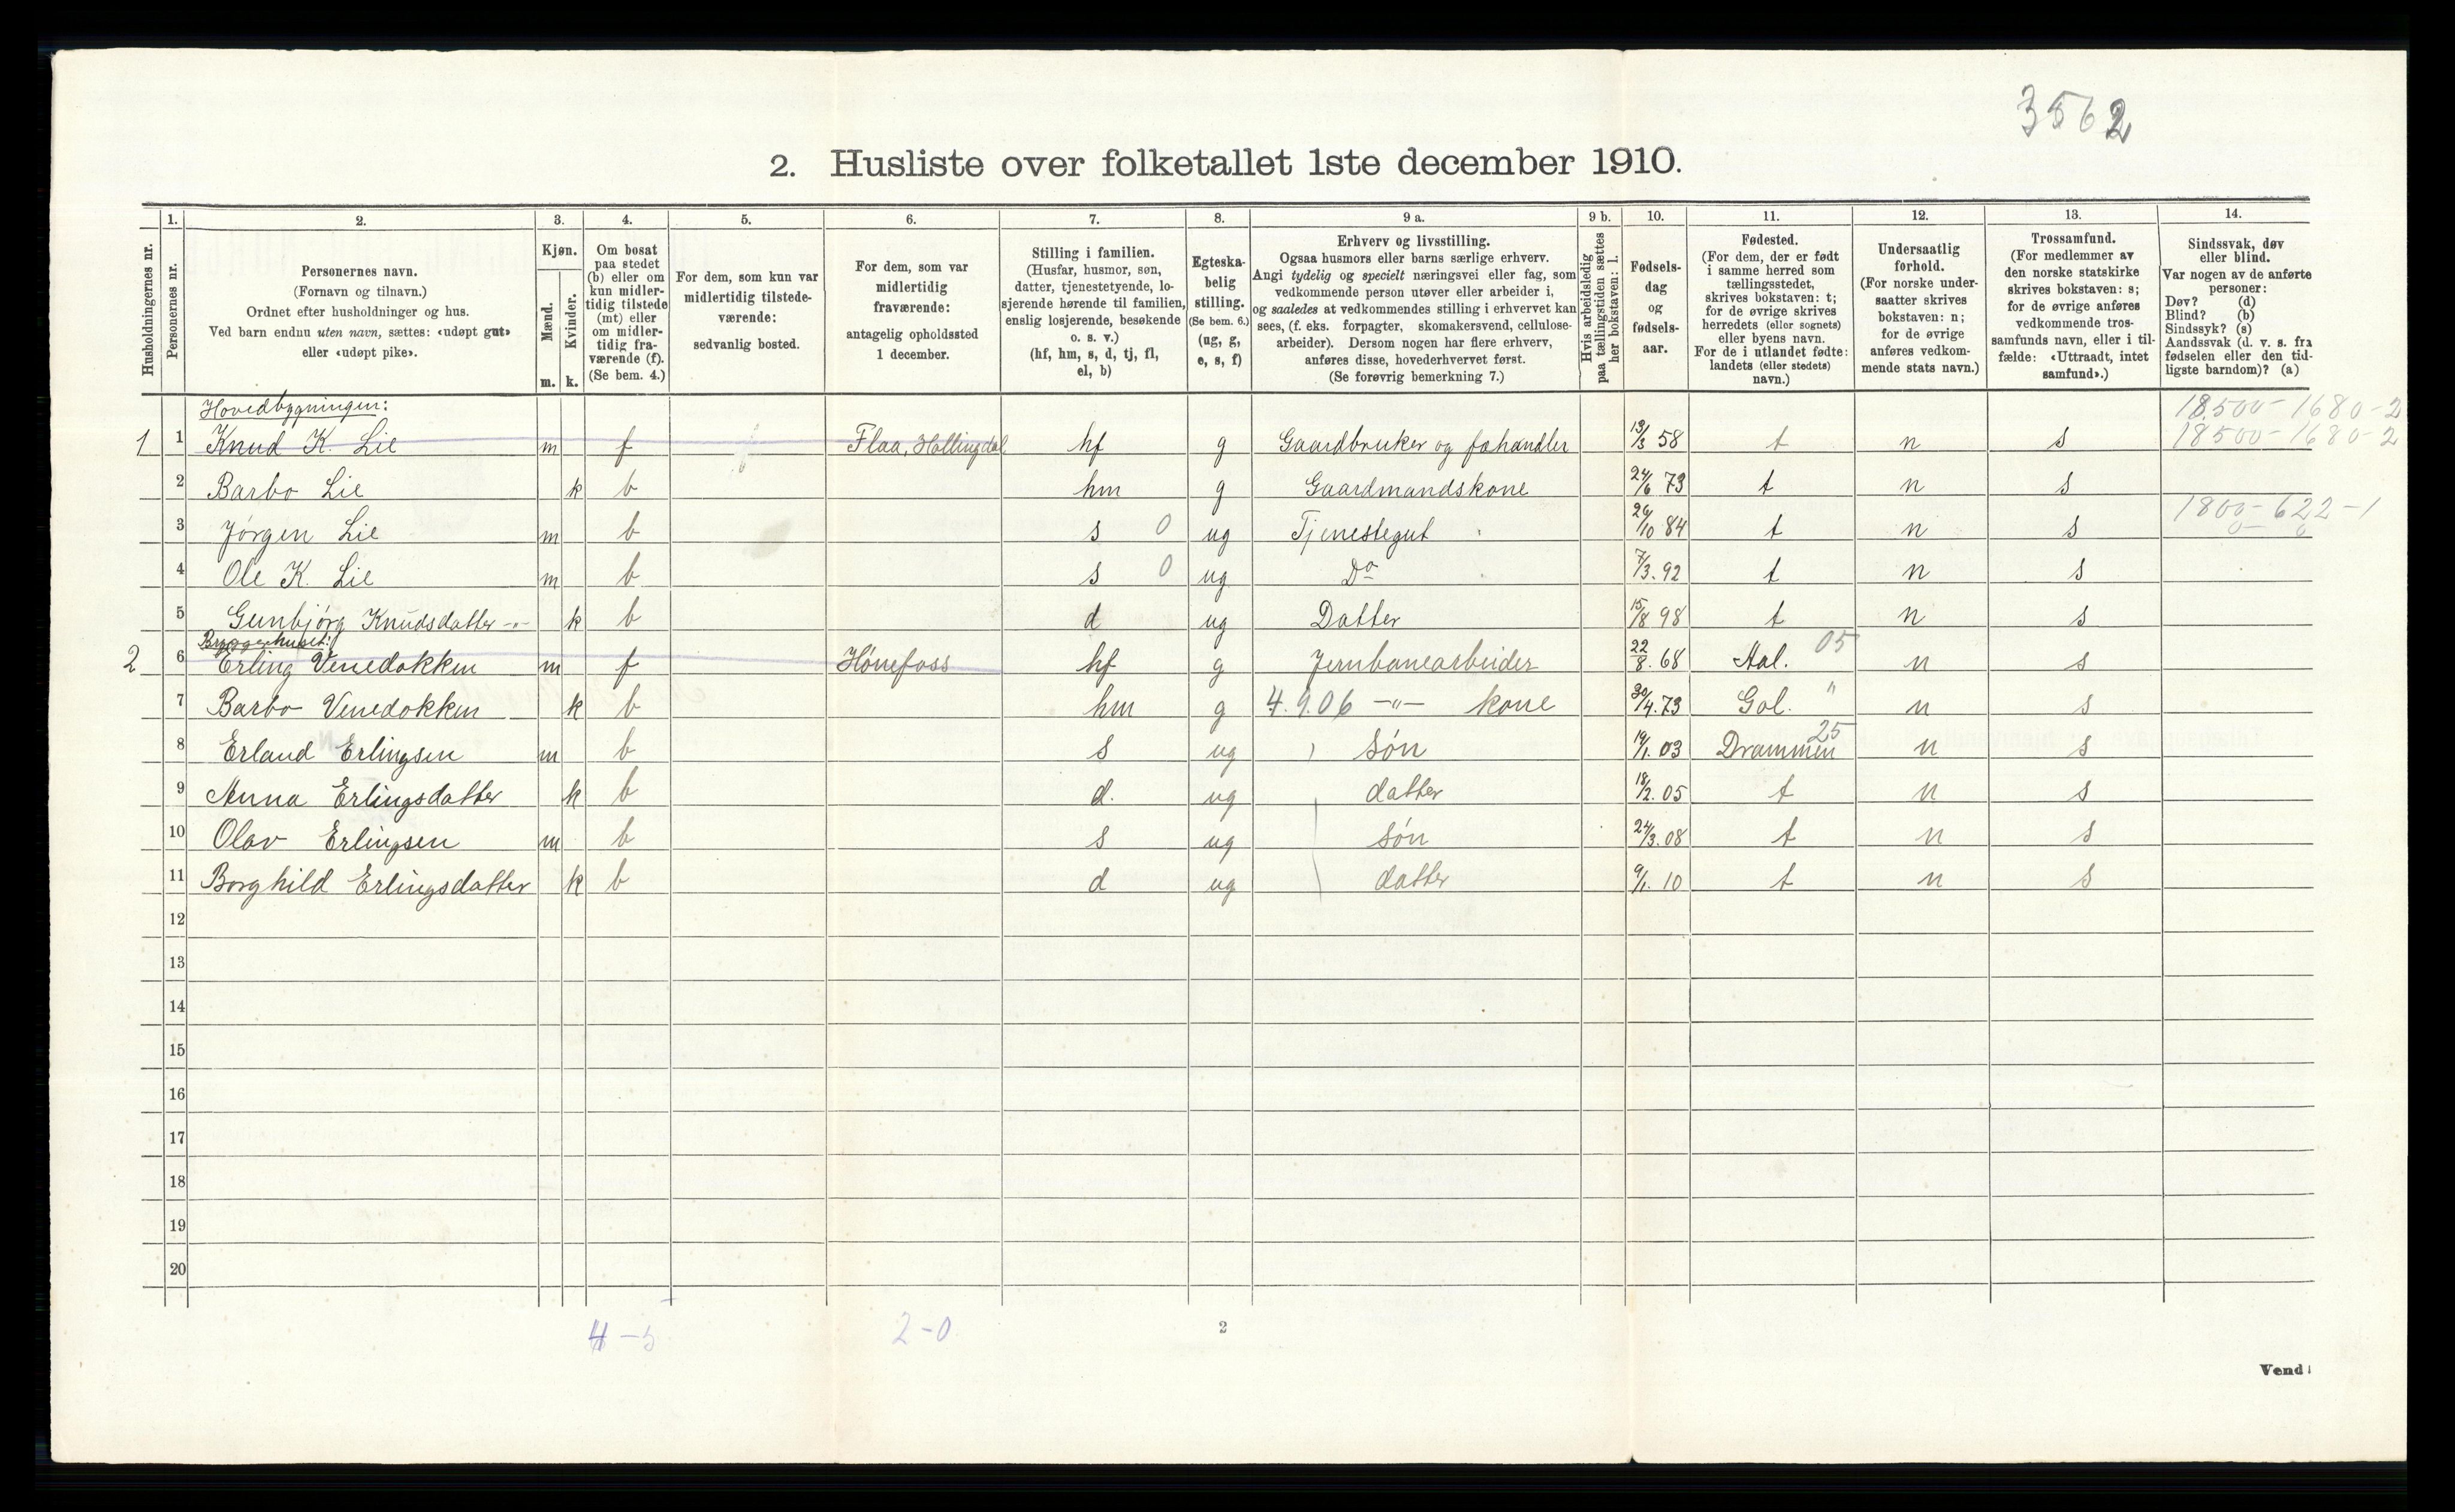 3562
2. Husliste over folketallet 1ste december 1910.
Husholdningernes nr.
1.
Personernes nr.
2.
Personernes navn.
(Fornavn og tilnavn.)
Ordnet efter husholdninger og hus.
Ved barn endnu uten navn, sættes: «udøpt gut»
eller «udøpt pike».
3.
Kjøn.
Mænd.
Kvinder.
m. k.
4.
Om bosat
paa stedet
(b) eller om
kun midler-
tidig tilstede
(mt) eller
om midler-
tidig fra-
værende (f).
(Se bem. 4.)
5.
For dem, som kun var
midlertidig tilstede-
værende:
sedvanlig bosted.
6.
For dem, som var
midlertidig
fraværende:
antagelig opholdssted
1 december.
7.
Stilling i familien.
(Husfar, husmor, søn,
datter, tjenestetyende, lo-
sjerende hørende til familien,
enslig losjerende, besøkende
o. s. v.)
(hf, hm, s, d, tj, fl,
el, b)
8.
Egteska-
belig
stilling.
(Se bem. 6.)
(ug, g,
e, s, f)
9 a.
Erhverv og livsstilling.
Ogsaa husmors eller barns særlige erhverv.
Angi tydelig og specielt næringsvei eller fag, som
vedkommende person utøver eller arbeider i,
og saaledes at vedkommendes stilling i erhvervet kan
sees, (f. eks. forpagter, skomakersvend, cellulose-
arbeider). Dersom nogen har flere erhverv,
anføres disse, hovederhvervet først.
(Se forøvrig bemerkning 7.)
9 b.
Hvis arbeidsledig
paa tællingstiden sættes
her bokstaven: l.
10.
Fødsels-
dag
og
fødsels-
aar.
11.
Fødested.
(For dem, der er født
i samme herred som
tællingsstedet,
skrives bokstaven: t;
for de øvrige skrives
herredets (eller sognets)
eller byens navn.
For de i utlandet fødte:
landets (eller stedets)
navn.)
12.
Undersaatlig
forhold.
(For norske under-
saatter skrives
bokstaven: n;
for de øvrige
anføres vedkom-
mende stats navn.)
13.
Trossamfund.
(For medlemmer av
den norske statskirke
skrives bokstaven: s;
for de øvrige anføres
vedkommende tros-
samfunds navn, eller i til-
fælde: «Uttraadt, intet
samfund».)
14.
Sindssvak, døv
eller blind.
Var nogen av de anførte
personer:
Døv? (d)
Blind? (b)
Sindssyk? (s)
Aandssvak (d. v. s. fra
fødselen eller den tid-
ligste barndom)? (a)
Hovedbygningen: 18.500-1680-2
1 1 Knud K. Lie m f Flaa, Hallingdal hf g Gaardbruker og fæhandler 13/3 58 t n s 18500-1680-2
2 Barbo Lie k b hm g Gaardmandskone 24/6 73 t n s
3 Jörgen Lie m b s 0 ug Tjenestegut 26/10 84 t n s 1800-622-1
4 Ole K. Lie m b s 0 ug Do 7/3. 92 t n s
5 Gunbjörg Knudsdatter -"- k b d ug Datter 15/8 98 t n s
Bryggerhuset:
2 6 Erling Venedokken m f Hönefoss hf g Jernbanearbeider 22/8. 68 Aal. 05 n s
7 Barbo Venedokken k b hm g 4.9.06 -"- kone 30/4. 73 Gol. " n s
8 Erland Erlingsen m b s ug sön 19/1. 03 Drammen 25 n s
9 Anna Erlingsdatter k b d. ug datter 18/2. 05 t n s
10 Olav Erlingsen m b s ug sön 24/3. 08 t n s
11 Borghild Erlingsdatter k b d ug datter 9/1. 10 t n s
12
13
14
15
16
17
18
19
20
4-5 2-0 2
Vend!